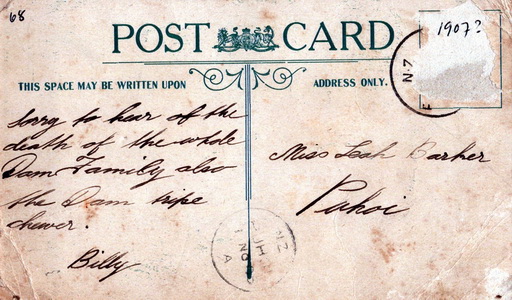 68
1907?
POST CARD
N.Z
THIS SPACE MAY BE WRITTEN UPON
ADDRESS ONLY.
Sorry to hear of the
death of the whole
Dam Family also
the Dam tripe
chewer.
Billy
Miss Leah Barker
Puhoi
N.Z
PUH
1 NO
A